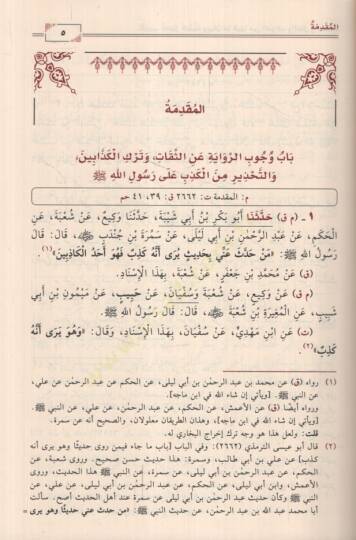 المُقَدِّمَةُ
٥
المُقَدِّمَةُ
بَابُ وُجُوبِ الرِّوَايَةِ عَنِ الثِّقَاتِ، وَتَرْكِ الْكَذَّابِينَ،
وَالتَّحْذِيرِ مِنَ الْكَذِبِ عَلَى رَسُولِ اللهِ ﷺ
م: المقدمة ت: ٢٦٦٢ ق: ٣٩، ٤١ حم
١ - (م ق) حَدَّثَنَا أَبُو بَكْرِ بْنُ أَبِي شَيْبَةَ، حَدَّثَنَا وَكِيعٌ، عَنْ شُعْبَةَ، عَنِ
الْحَكَمِ، عَنْ عَبْدِ الرَّحْمٰنِ بْنِ أَبِي لَيْلَى، عَنْ سَمُرَةَ بْنِ جُنْدَبٍ ﷺ، قَالَ: قَالَ
رَسُولُ اللهِ ﷺ: «مَنْ حَدَّثَ عَنِّي بِحَدِيثٍ يُرَى أَنَّهُ كَذِبٌ فَهُوَ أَحَدُ الْكَاذِبِينَ»(١).
(ق) عَنْ مُحَمَّدِ بْنِ جَعْفَرٍ، عَنْ شُعْبَةَ، بِهَذَا الْإِسْنَادِ.
(م ق) عَنْ وَكِيعٍ، عَنْ شُعْبَةَ وَسُفْيَانَ، عَنْ حَبِيبٍ، عَنْ مَيْمُونِ بْنِ أَبِي
شَبِيبٍ، عَنِ الْمُغِيرَةِ بْنِ شُعْبَةَ ﷺ، قَالَ: قَالَ رَسُولُ اللهِ ﷺ.
(ت) عَنِ ابْنِ مَهْدِيٍّ، عَنْ سُفْيَانَ، بِهَذَا الْإِسْنَادِ، وَقَالَ: «وَهُوَ يَرَى أَنَّهُ
كَذِبٌ»(٢).
(١) رواه (ق) عن محمد بن عبد الرحمٰن بن أبي ليلى، عن الحكم عن عبد الرحمٰن عن علي، عن
النبي ﷺ. [ويأتي إن شاء الله في ابن ماجه].
ورواه أيضًا (ق) عن الأعمش، عن الحكم، عن عبد الرحمٰن، عن علي، عن النبي ﷺ.
[ويأتي إن شاء الله في ابن ماجه]، وهذان الطريقان معلولان، والصحيح أنه عن سمرة.
قلت: ولعل هذا هو وجه ترك إخراج البخاري له.
(٢) قال أبو عيسى الترمذي (٢٦٦٢): وفي الباب [باب ما جاء فيمن روى حديثًا وهو يرى أنه
كذب] عن علي بن أبي طالب، وسمرة: هذا حديث حسن صحيح. وروى شعبة، عن
الحكم، عن عبد الرحمٰن بن أبي ليلى، عن سمرة، عن النبي ﷺ هذا الحديث، وروى
الأعمش، وابن أبي ليلى، عن الحكم، عن عبد الرحمٰن بن أبي ليلى، عن علي، عن
النبي ﷺ وكأن حديث عبد الرحمٰن بن أبي ليلى عن سمرة عند أهل الحديث أصح. سألت
أبا محمد عبد الله بن عبد الرحمٰن، عن حديث النبي ﷺ: «من حدث عني حديثًا وهو يرى =